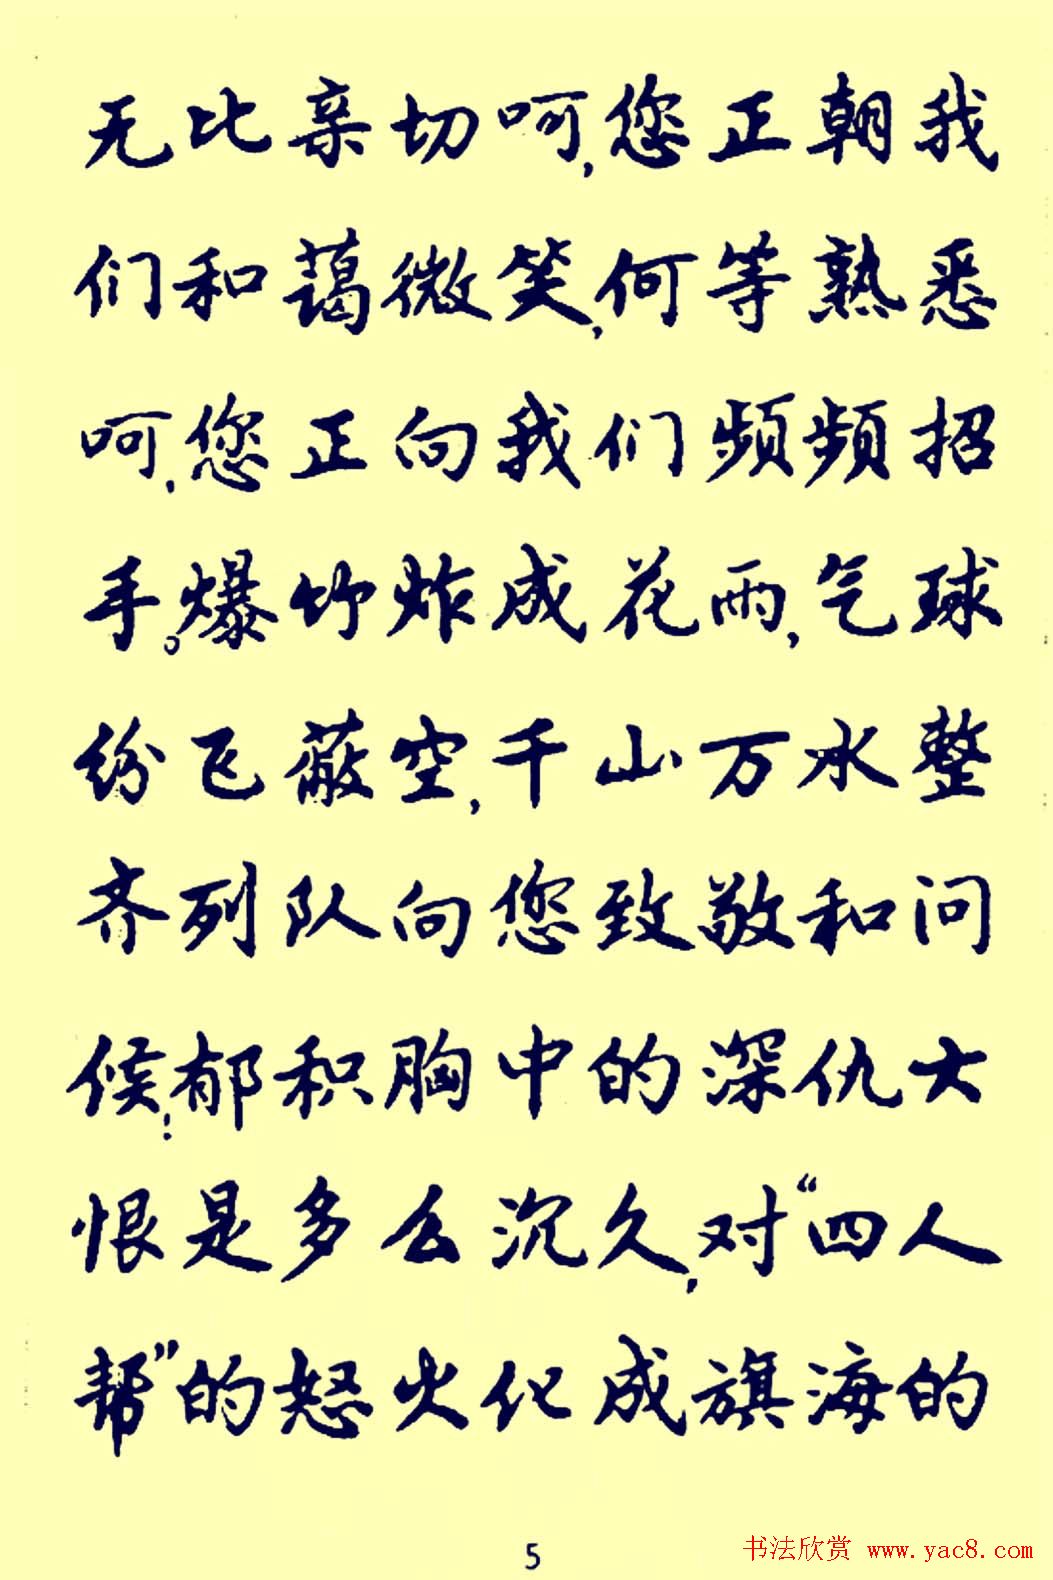 无比亲切呵,您正朝我
们和蔼微笑,何等熟悉
呵,您正向我们频频招
手。爆竹炸成花雨,气球
纷飞蔽空,千山万水整
齐列队向您致敬和问
候!郁积胸中的深仇大
恨是多么沉久,对“四人
帮”的怒火化成旗海的
5
书法欣赏 www.yac8.com